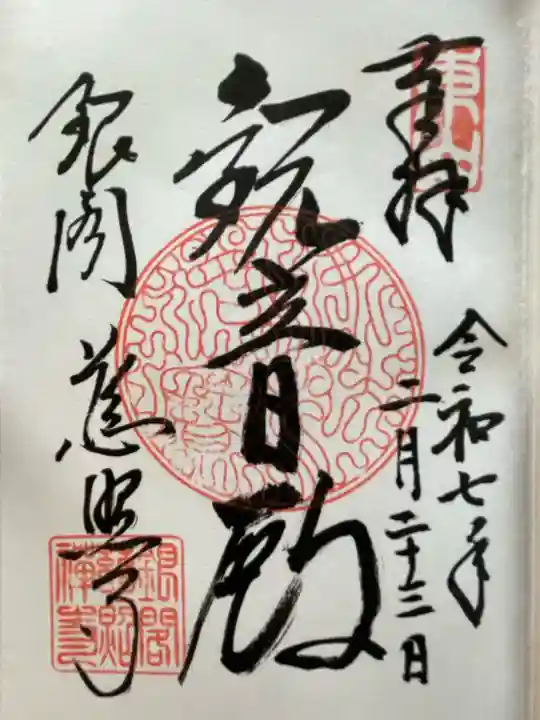 奉拝
令和七年
二月二十二日
観音殿
銀閣 慈照寺
東山
銀閣
慈照
禅寺